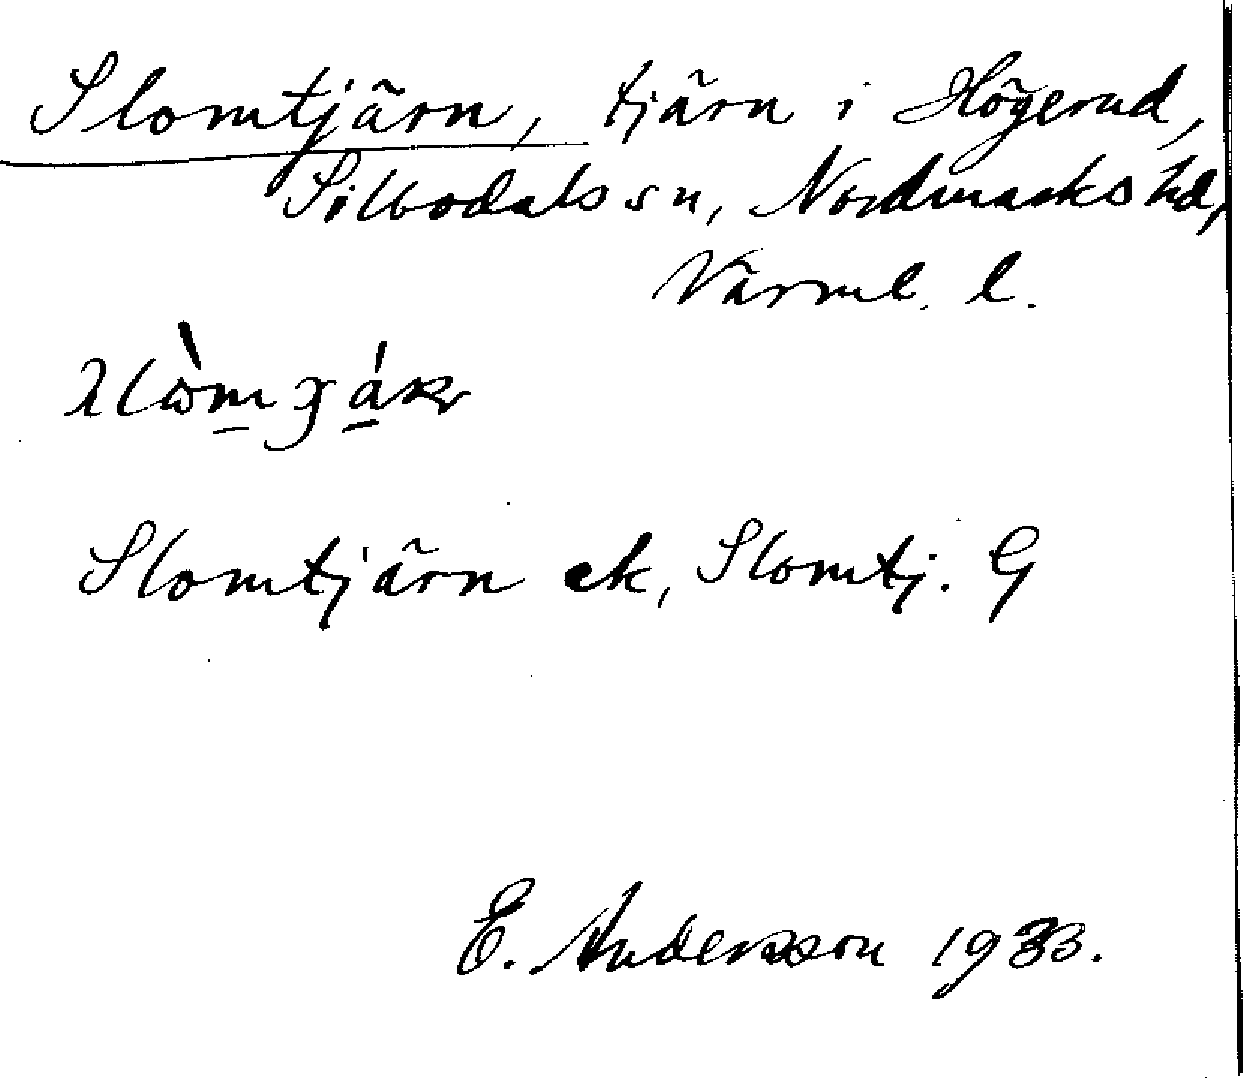 Slomtjärn, tjärn i Högerud,
Silbodals sn, Nordmarks hd,
Värml. l.
Slomtjärn ek, Slomtj. G
E. Andersson 1933.